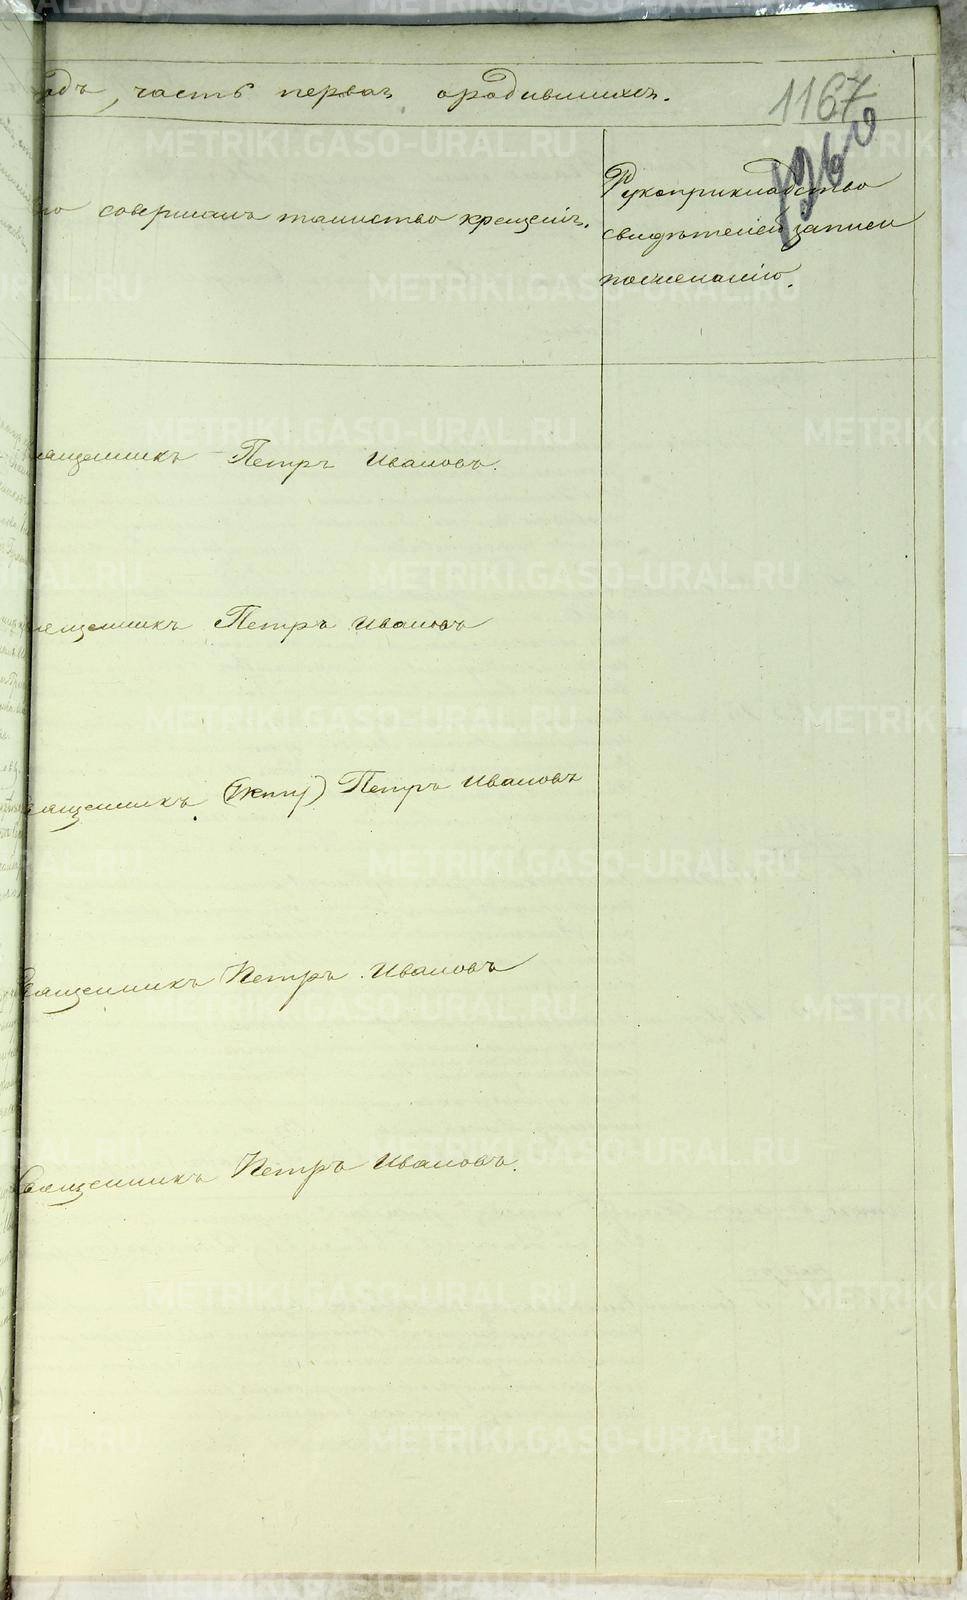 одъ, часть первая о родившихся.
1167
1260
то совершалъ таинство крещенія.
Рукоприкладство
свидѣтелей записи
по желанію.
Священникъ Петръ Ивановъ.
Священникъ Петръ Ивановъ
Священникъ Петръ Ивановъ
Священникъ Петръ Ивановъ
Священникъ Петръ Ивановъ.
METRIKI.GASO-URAL.RU